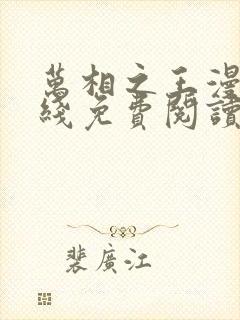 萬相之王漫
綫免費閱讀
裴廣江